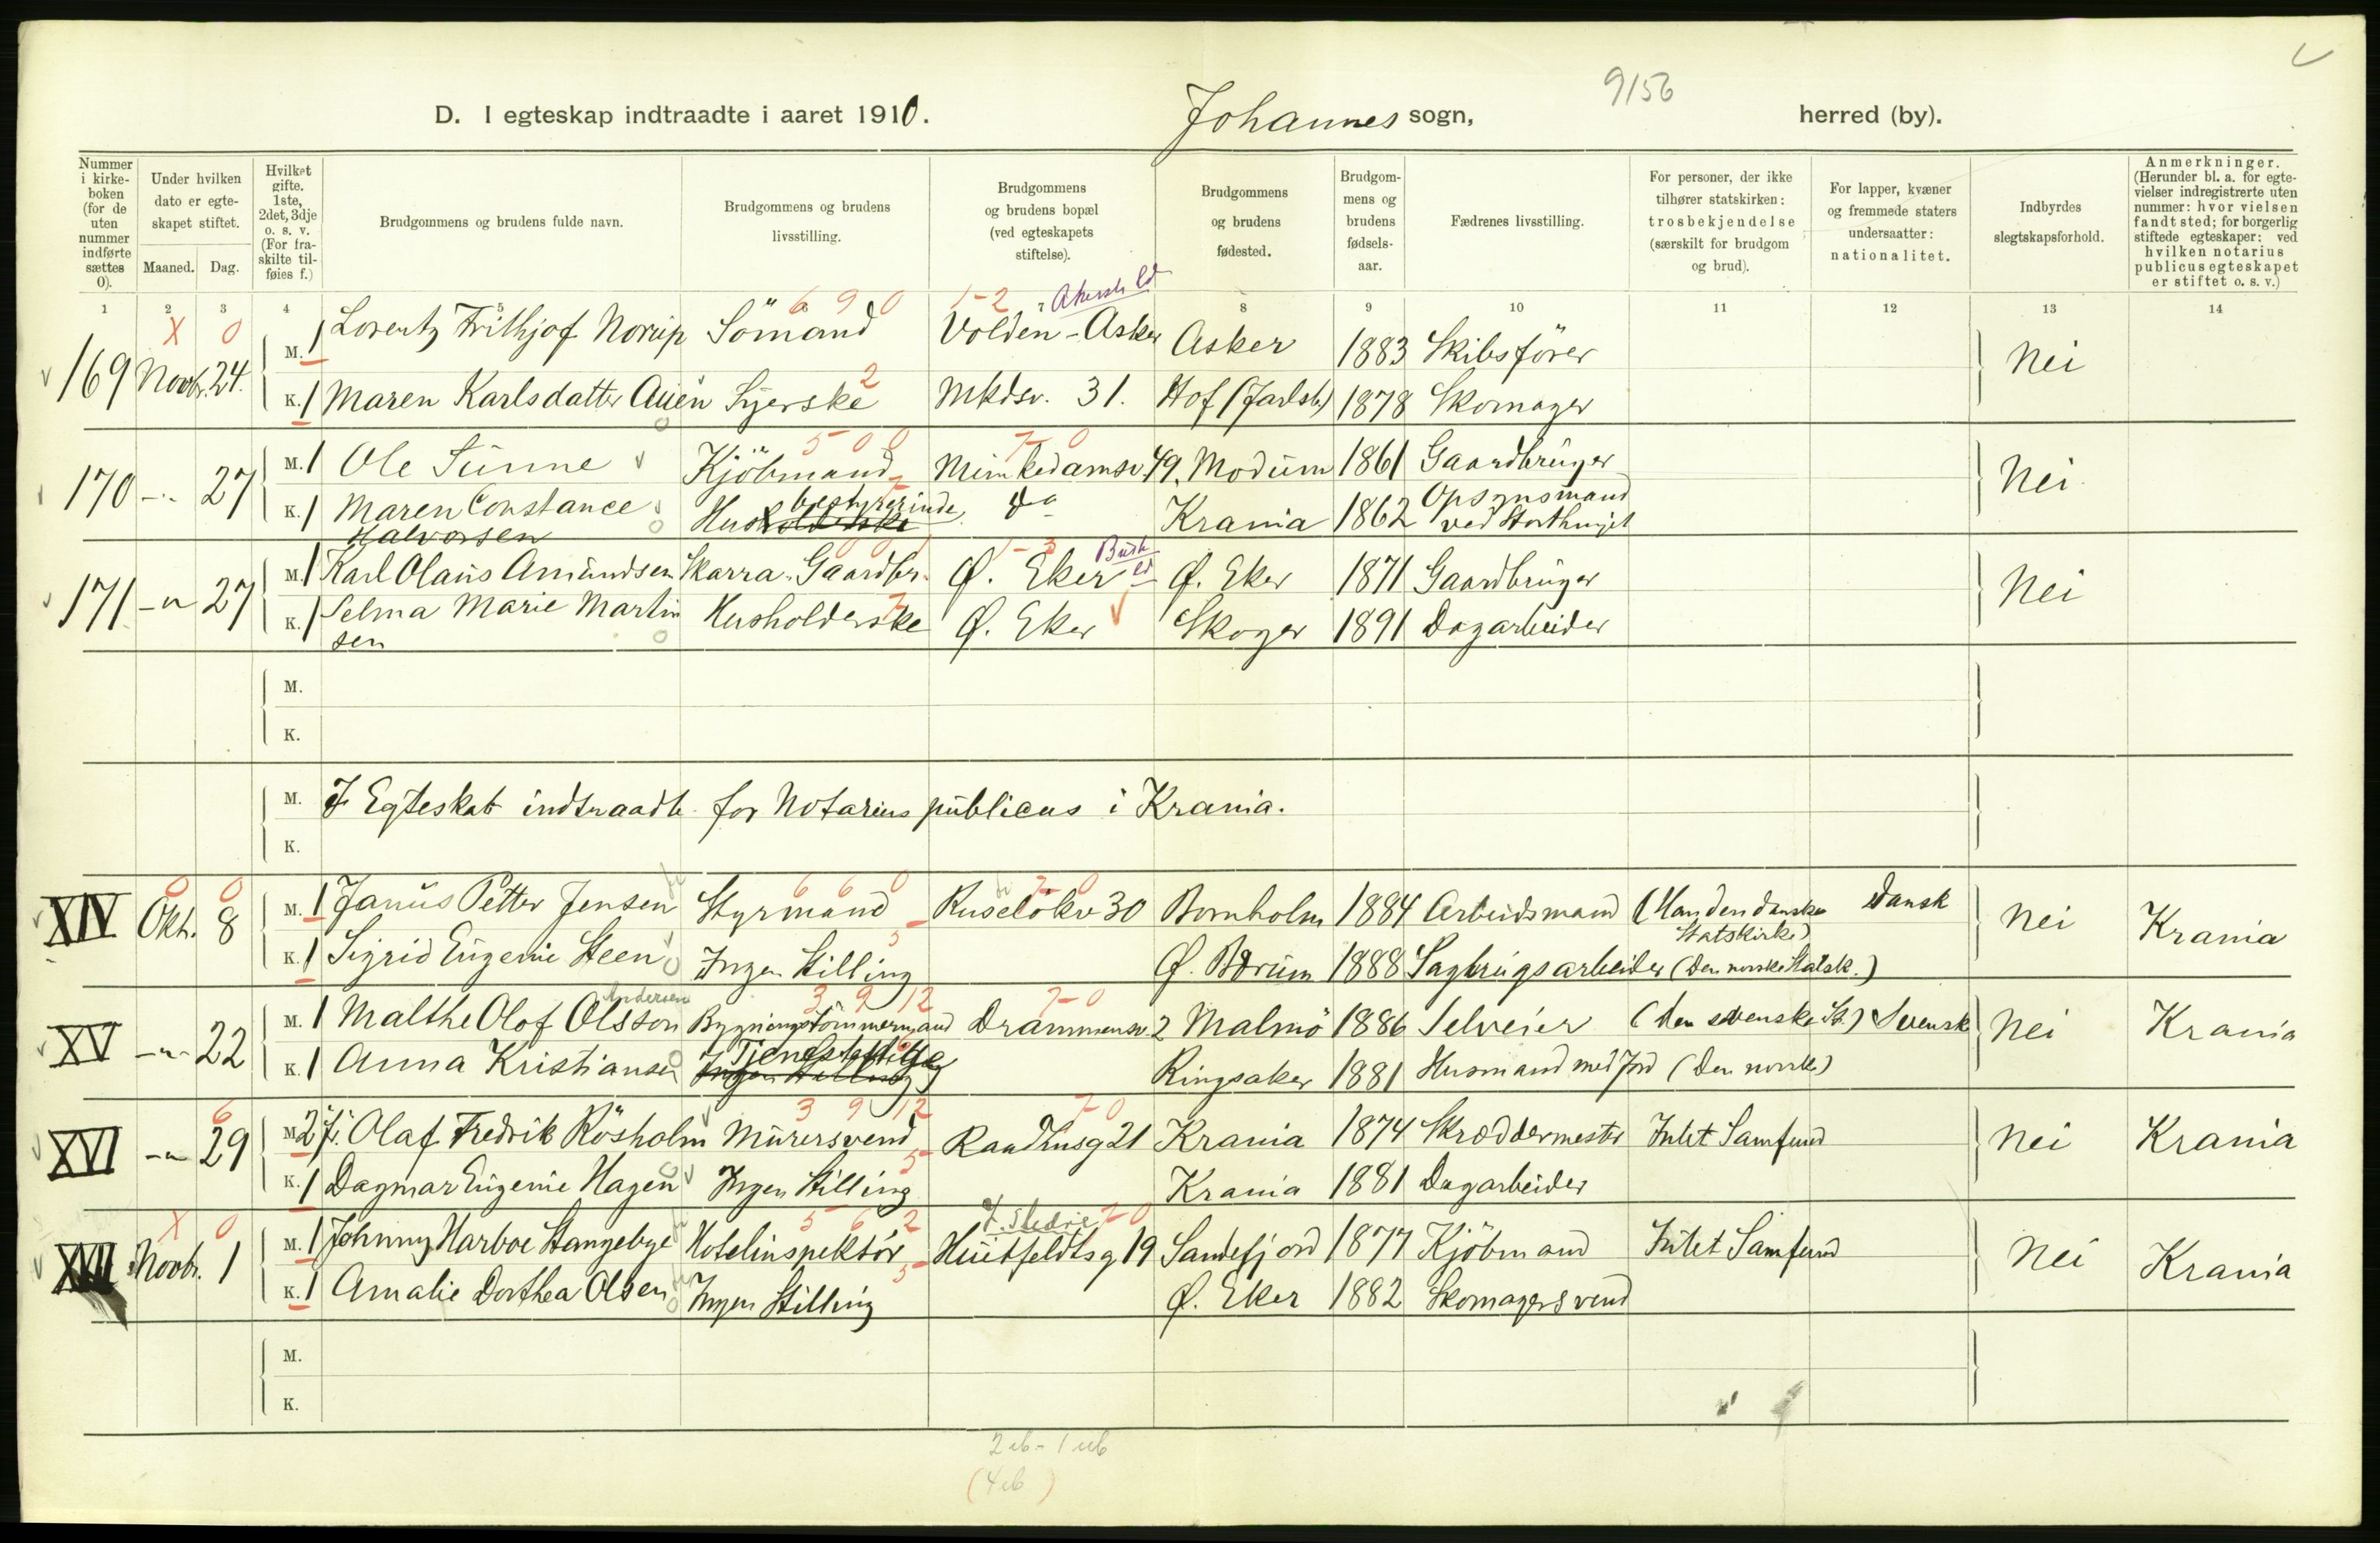 9156
D. I egteskap indtraadte i aaret 1910. Johannes sogn, herred (by).
Nummer i kirke-boken (for de uten nummer indførte sættes 0).
Under hvilken dato er egte-skapet stiftet.
Maaned. Dag.
Hvilket gifte. 1ste, 2det, 3dje o. s. v. (For fra-skilte til-føies f.)
Brudgommens og brudens fulde navn.
Brudgommens og brudens livsstilling.
Brudgommens og brudens bopæl (ved egteskapets stiftelse).
Brudgommens og brudens fødested.
Brudgom-mens og brudens fødsels-aar.
Fædrenes livsstilling.
For personer, der ikke tilhører statskirken: trosbekjendelse (særskilt for brudgom og brud).
For lapper, kvæner og fremmede staters undersaatter: nationalitet.
Indbyrdes slegtskapsforhold.
Anmerkninger. (Herunder bl. a. for egte-vielser indregistrerte uten nummer: hvor vielsen fandt sted; for borgerlig stiftede egteskaper: ved hvilken notarius publicus egteskapet er stiftet o. s. v.)
1 2 3 4 5 6 7 8 9 10 11 12 13 14
X 0 6 9 0 1-2
169 Novbr. 24. M. 1 Lorentz Frithjof Norup Sömand Volden-Asker Asker 1883 Skibsförer Nei
2
K. 1 Maren Karlsdatter Auen Syerske Mkdsv. 31. Hof (Jarlsb) 1878 Skomager
5 0 0 7-0
170 -"- 27 M. 1 Ole Sunne Kjöbmand Munkedamsv. 49. Modum 1861 Gaardbruger Nei
K. 1 Maren Constance Halvorsen Husbestyrerinde do Krania 1862 Opsynsmand ved Storthinget
1-3 Busk ld
171 -"- 27 M. 1 Karl Olaus Amundsen Skarra. Gaardbr. Ø. Eker Ø. Eker 1871 Gaardbruger Nei
K. 1 Selma Marie Martinsen Husholderske Ø. Eker Skoger 1891 Dagarbeider
M.
K.
M. I Egteskab indtraadte for Notarius publicus i Krania.
K.
0 0 6 6 0 7-0
XIV Okt. 8 M. 1 Janus Petter Jensen Styrmand Ruselökv 30 Bornholm 1884 Arbeidsmand (Han den danske Statskirke) Dansk Nei Krania
5
K. 1 Sigrid Eugenie Steen Ingen Stilling Ø. Bærum 1888 Sagbrugsarbeider (Den norske Statsk.)
Andersen 3 9 12 7-0
XV -"- 22 M. 1 Malthe Olof Olsson Bygningstömmermand Drammensv. 2 Malmö 1886 Selveier (Den svenske St.) Svensk Nei Krania
K. 1 Anna Kristiansen Tjenestepige Ringsaker 1881 Husmand med Jord (Den norske)
6 3 9 12 7-0
XVI -"- 29 M. 2 f. Olaf Fredrik Rösholm Murersvend Raadhusg 21 Krania 1874 Skræddermester Intet Samfund Nei Krania
5
K. 1 Dagmar Eugenie Hagen Ingen Stilling Krania 1881 Dagarbeider
X 0 5 6 2 7-0
XVII Novbr. 1 M. 1 Johnny Harboe Stangebye Hotelinspektör Huitfeldtsg 19 Sandefjord 1877 Kjöbmand Intet Samfund Nei Krania
5
K. 1 Amalie Dorthea Olsen Ingen Stilling Ø. Eker 1882 Skomagersvend
M.
K.
2 ub - 1 ub
(4 ub)